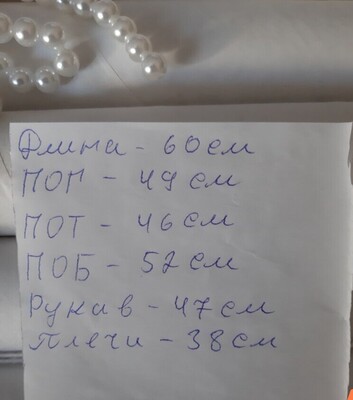 Длина - 60 см
ПОГ - 49 см
ПОТ - 46 см
ПОБ - 52 см
Рукав - 47 см
Плечи - 38 см